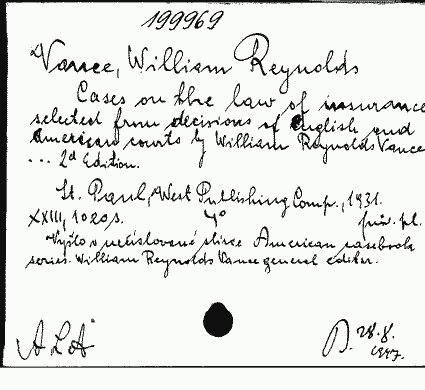 199969
Vance, William Reynolds
Cases on the law of insurance
selected from decisions of English and
American courts by William Reynolds Vance
... 2d Edition.
St. Paul, West Publishing Comp., 1931.
XXIII, 1020 s. 4° pův. pl.
Vyšlo v nečíslované sbírce American casebook
series. William Reynolds Vance general editor.
28.8.
1947.